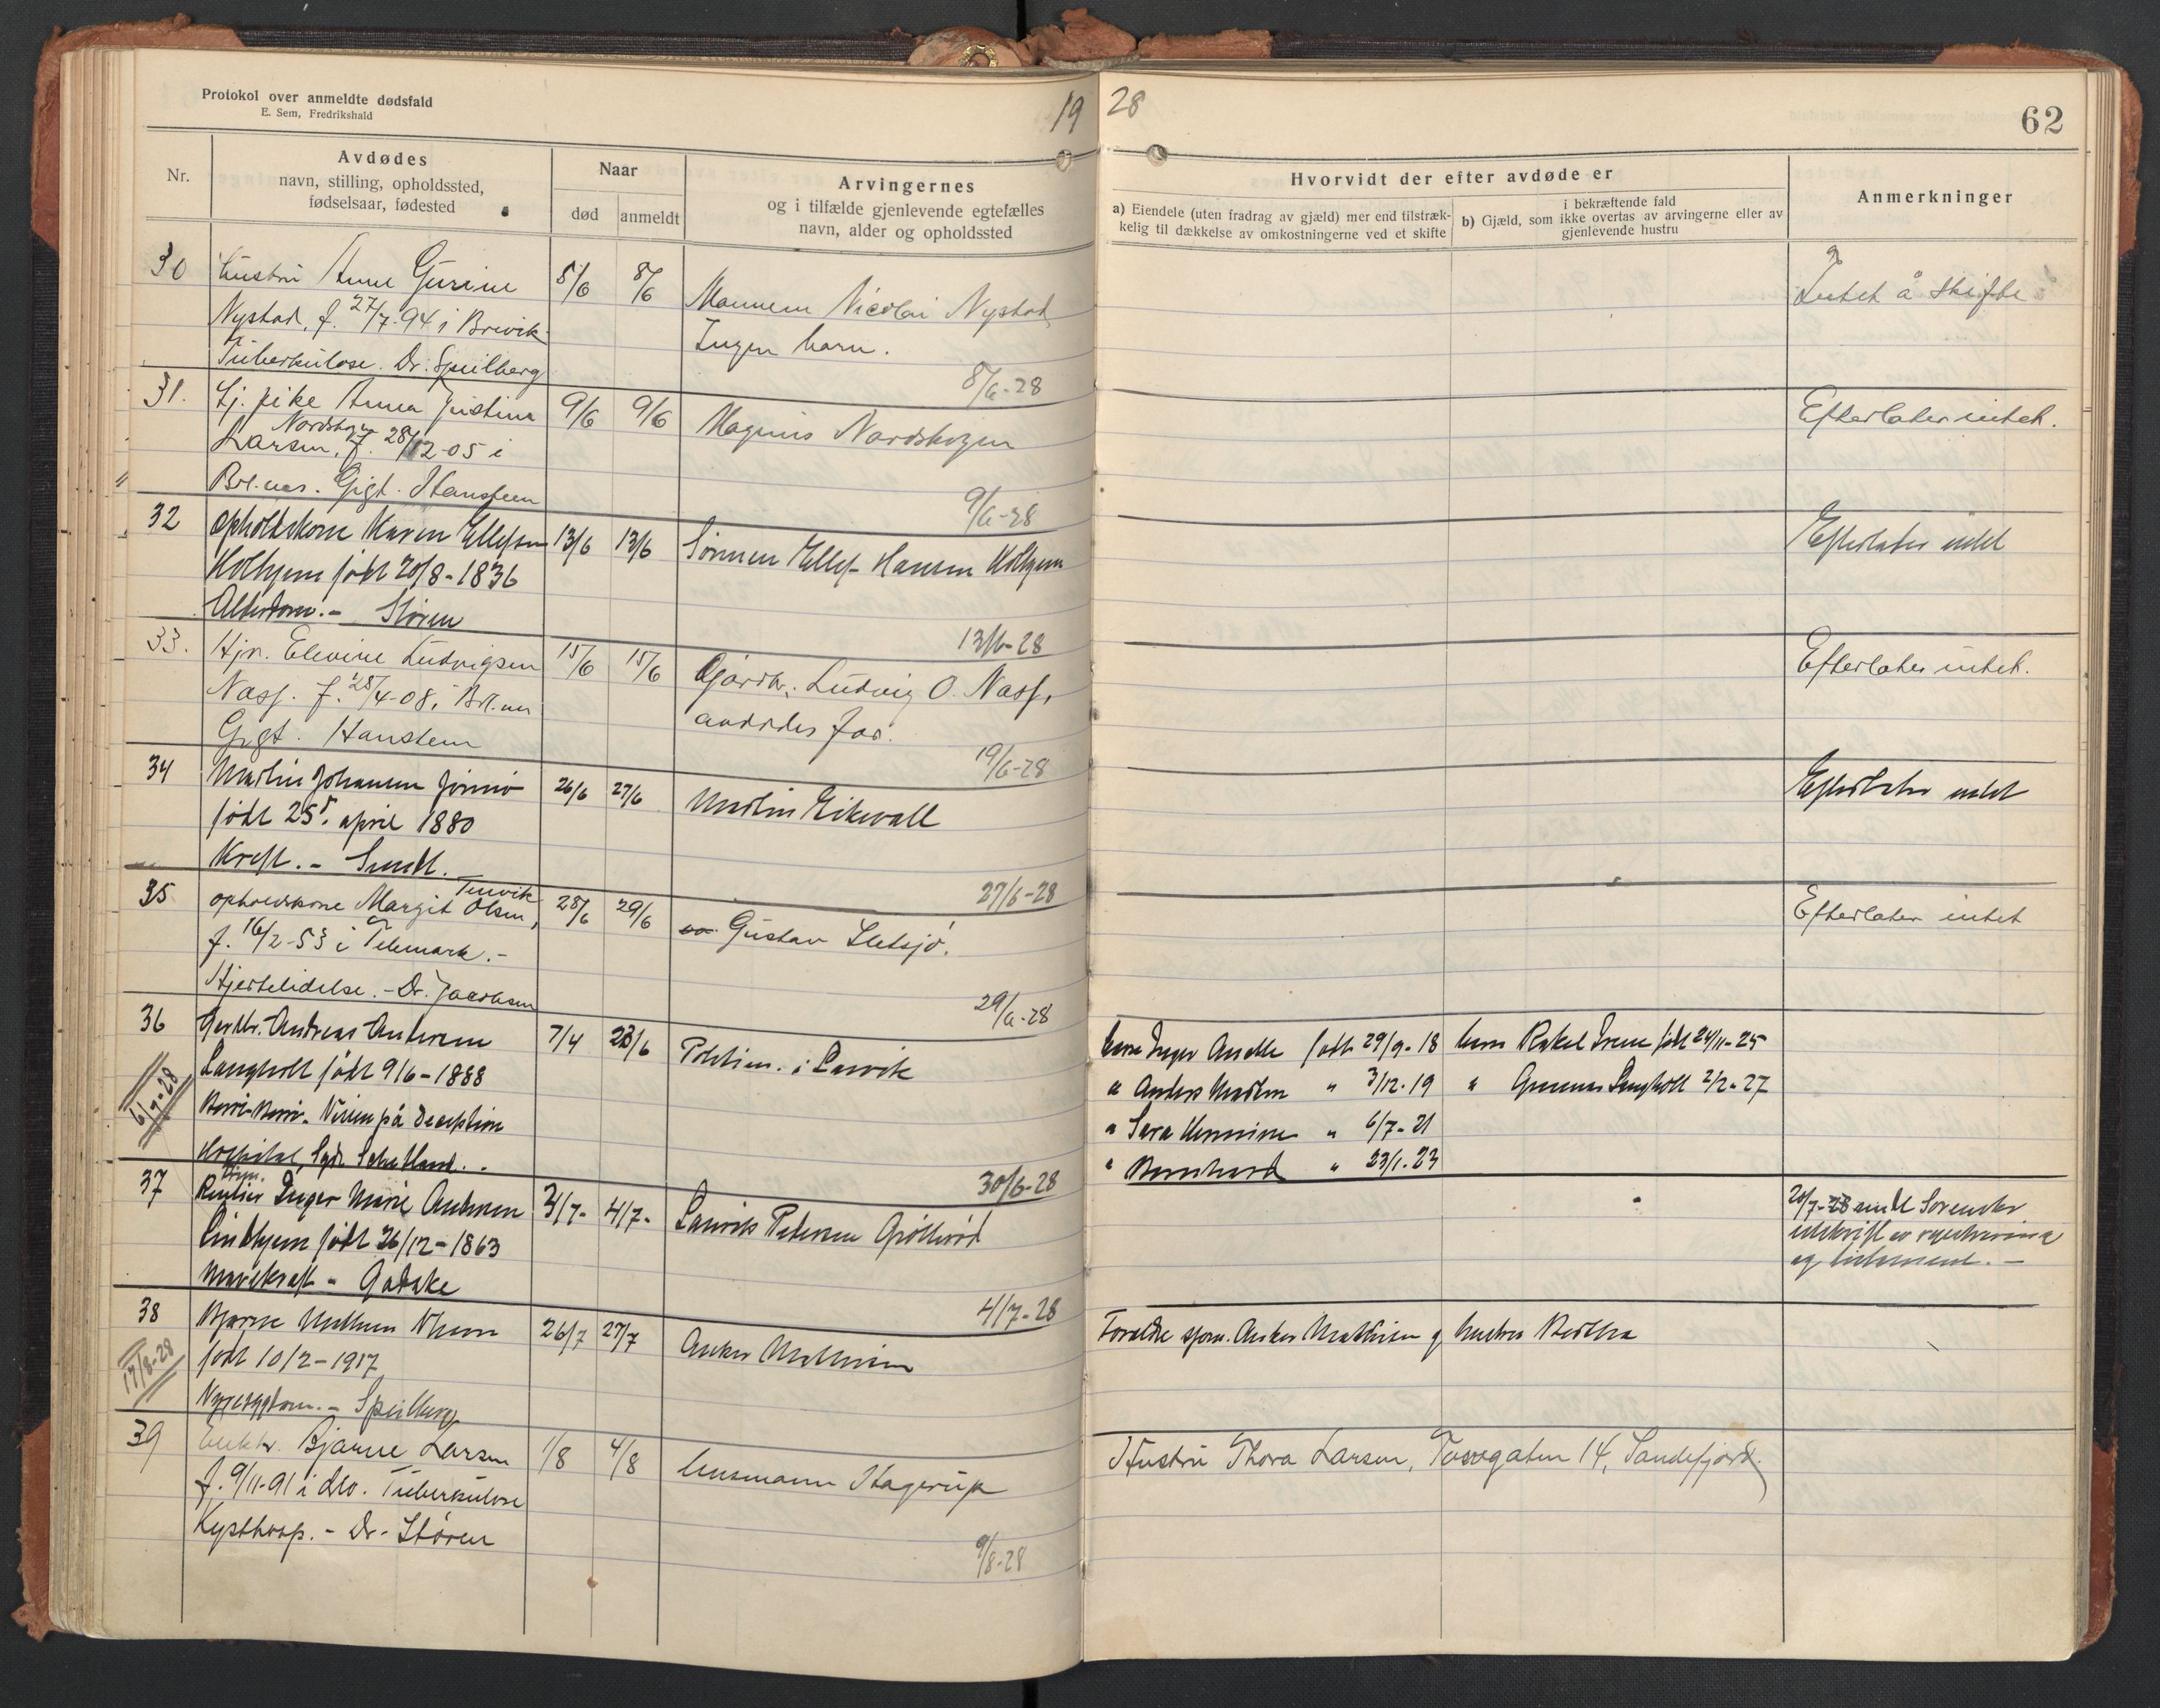 Protokol over anmeldte dødsfald
E. Sem, Fredrikshald
19
28
62
Nr.
Avdødes
navn, stilling, opholdssted,
fødselsaar, fødested
Naar
død
anmeldt
Arvingernes
og i tilfælde gjenlevende egtefælles
navn, alder og opholdssted
Hvorvidt der efter avdøde er
a) Eiendele (uten fradrag av gjæld) mer end tilstræk-
kelig til dækkelse av omkostningerne ved et skifte
i bekræftende fald
b) Gjæld, som ikke overtas av arvingerne eller av
gjenlevende hustru
Anmerkninger
30
hustru Anne Gurine
Nystad, f. 27/7-94 i Brevik
Tuberkulose. Dr. Speilberg
8/6
Mannen Nicolai Nystad
Ingen barn.
8/6-28
Intet å skifte
31.
Tj. pike Anna Justine
Nordskogen
Larsen, f. 28/12-05 i
Br.l.nes. Gigt. Hansteen
9/6
9/6
Magnus Nordskogen
9/6-28
Efterlater intet.
32
opholdskone Maren Ellefsen
Holtgem født 20/8-1836
Alderdom.- Støren
13/6
13/6
Sønnen Ellef Hansen
13/6-28
Efterlater intet
33.
Hjv. Elevine Ludvigsen
Nass. f. 28/4-08,
Gigt. Hansteen
15/6
15/6
Gårdbr. Ludvig O. Nass,
avdødes far.
19/6-28
Efterlater intet.
34
Martin Johansen
født 25. april 1880
Kreft.-
26/6
27/6
Martin Eikevall
27/6-28
Efterlater intet
35
Tenvik
opholdskone Margit Olsen,
f. 16/2-53 i Telemark.-
Hjertelidelse.- Dr. Jacobsen
28/6
29/6
Gustav Sletsjø.
29/6-28
Efterlater intet
36
6/7-28
Gårdbr. Andreas Andersen
Langholt født 9/6-1888
Berri-Berri. på Deception
Hospital, Syd Schetland.
7/4
28/6
Politim. i Larvik
30/6-28
barn Inger Anette født 29/9-18
" Anders Martin " 3/12-19
" Sara Hermine " 6/7-21
" Bernhard " 23/1-23
barn Rakel Irene født 24/11-25
" Gunnar Langholt 2/2-27
37
Inger Marie Andersen
født 26/12-1863
Mavekreft -
3/7-
4/7-
4/7-28
20/7-28 sendt Sorenskr
utskrift av registrering
og testament.-
38
17/8-28
Bjarne
født 10/2-1917
Nyresygdom.- Speilberg
26/7
27/7
Anker Mathisen
Foreldre Anker Mathisen og hustru Bertha
39
Elektr. Bjarne Larsen
f. 9/11-91 i Tuberkulose
Kysthosp. - Dr. Støren
1/8
4/8
Lensmann Hagerup
9/8-28
Hustru Thora Larsen, Torvgaten 14, Sandefjord.